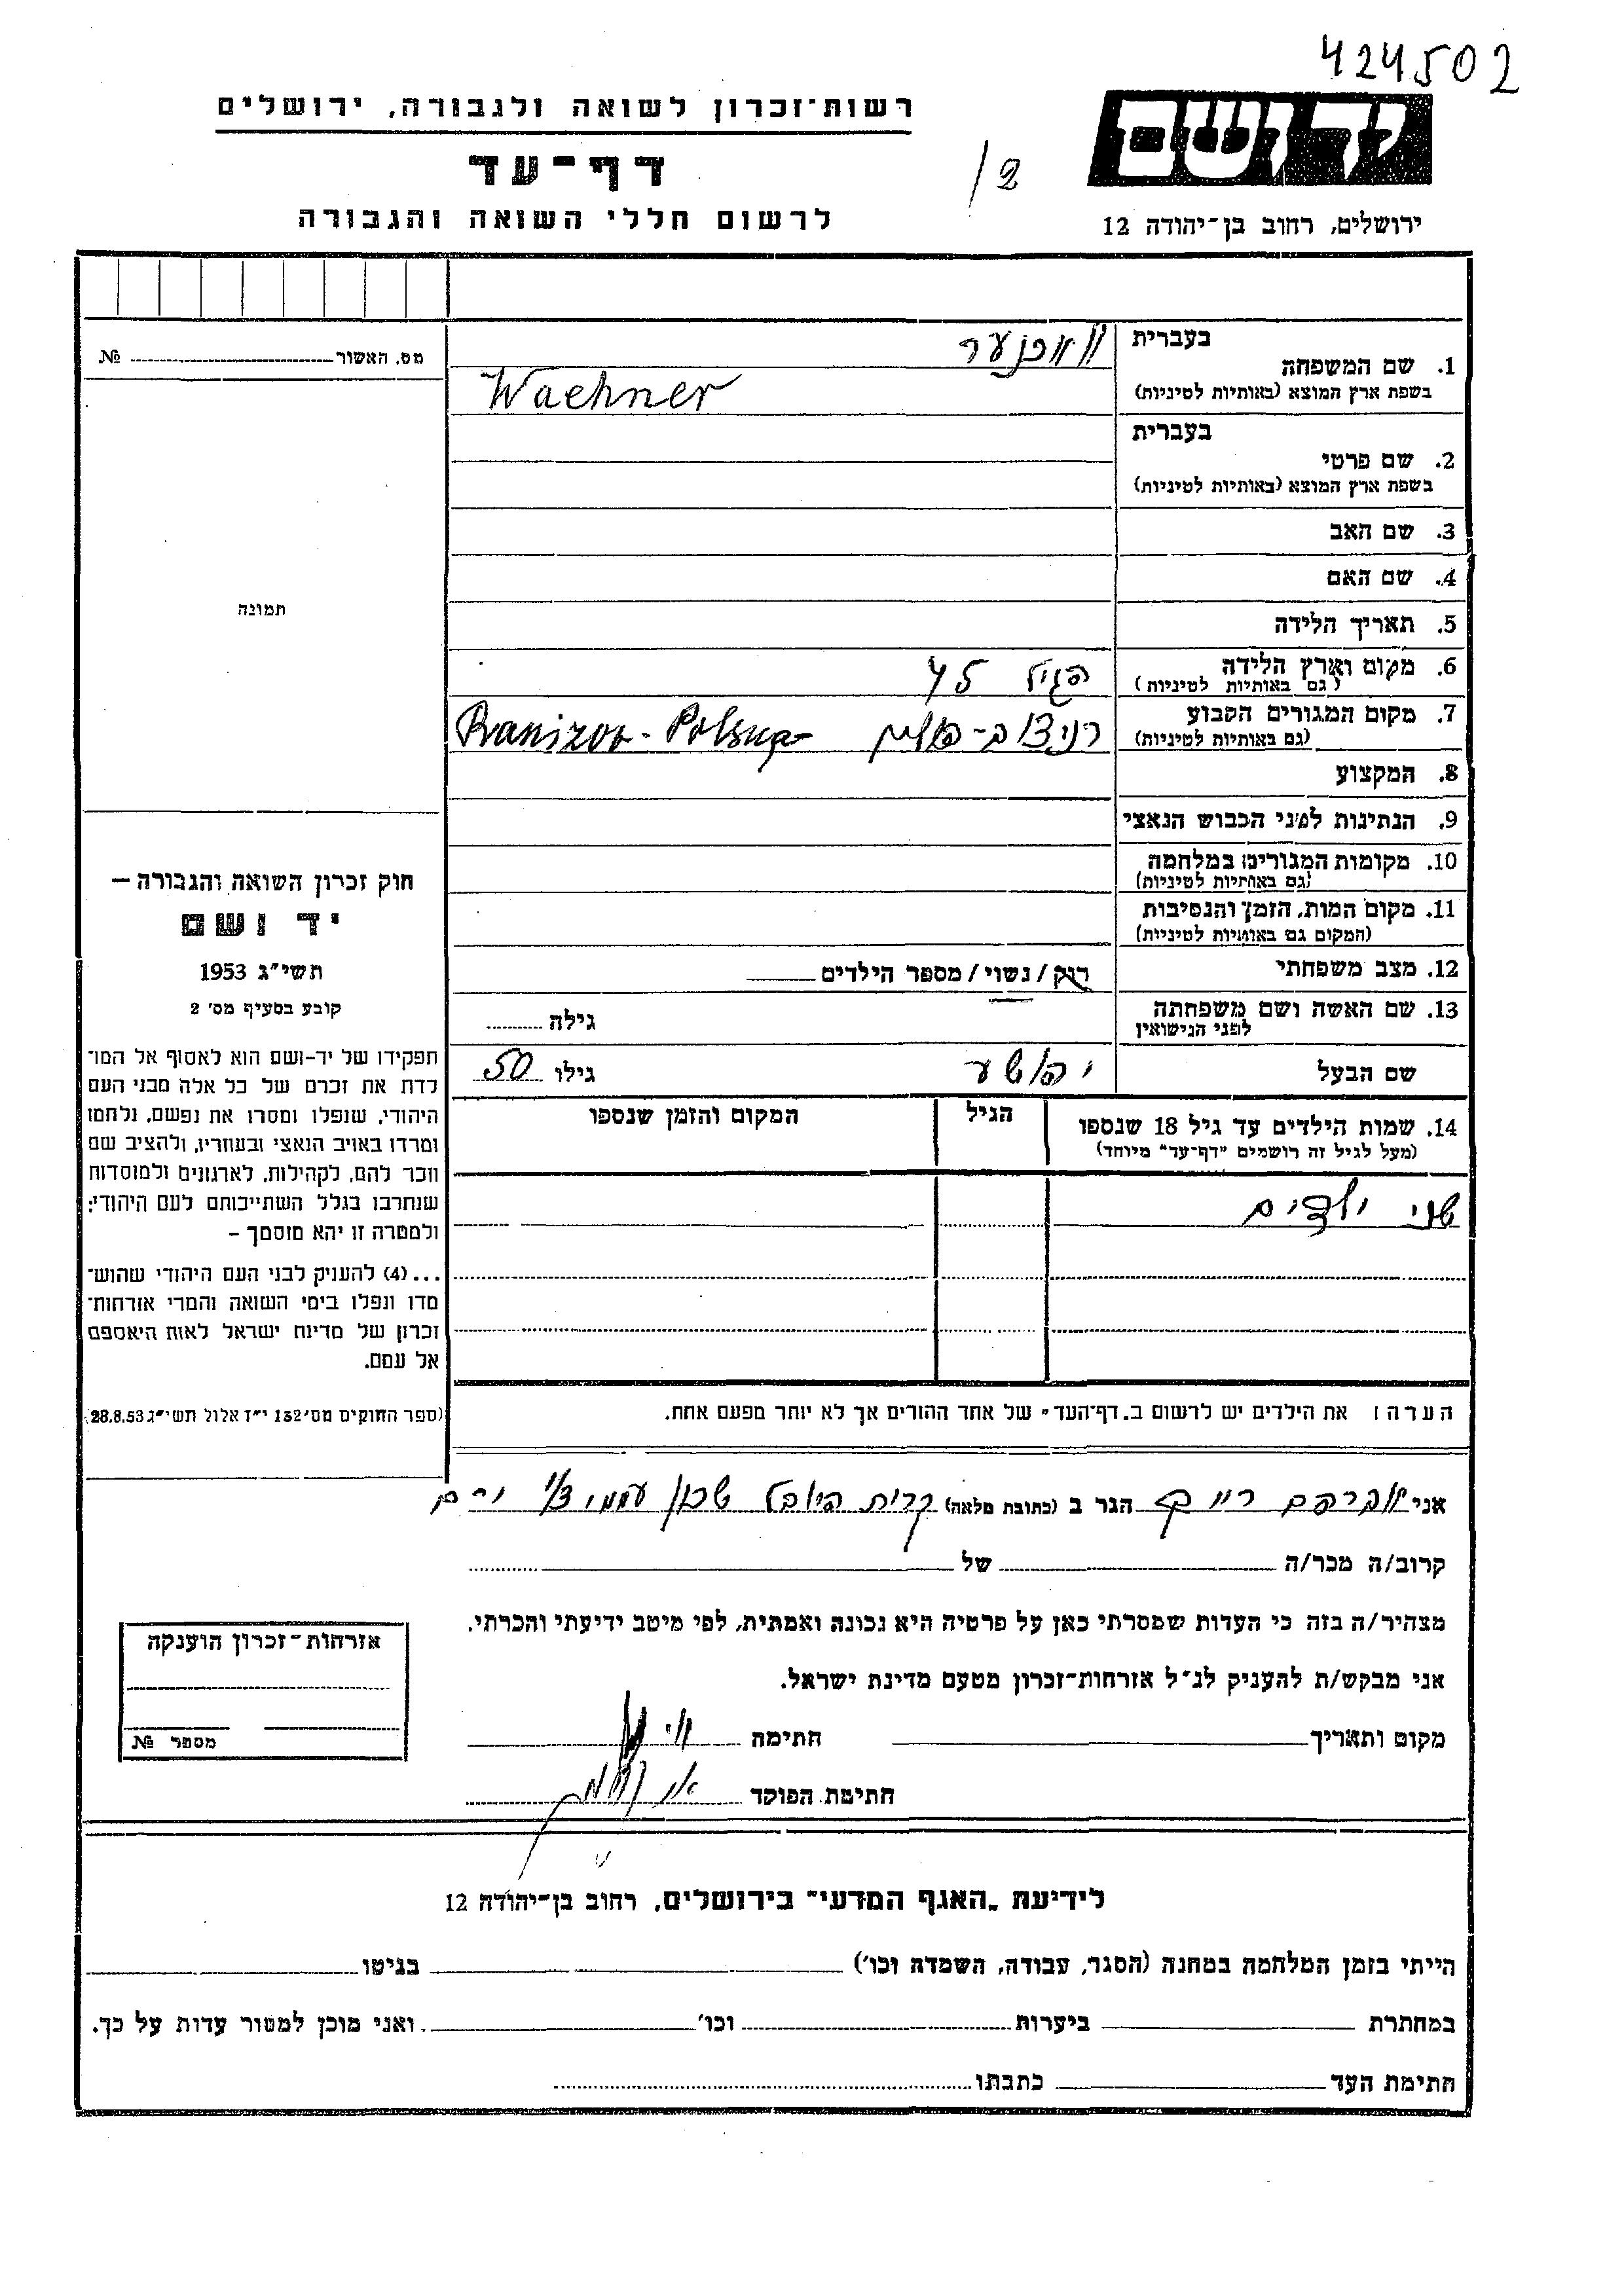 424502
יד ושם
רשות־זכרון לשואה ולגבורה, ירושלים
דף־עד
לרשום חללי השואה והגבורה
ירושלים, רחוב בן־יהודה 12
/2
מס. האשור № 
1. שם המשפחה
בעברית
בשפת ארץ המוצא (באותיות לטיניות)
Waehner
2. שם פרטי
בעברית
בשפת ארץ המוצא (באותיות לטיניות)
3. שם האב
4. שם האם
תמונה
5. תאריך הלידה
6. מקום וארץ הלידה
(גם באותיות לטיניות)
הגיל 45
7. מקום המגורים הקבוע
(גם באותיות לטיניות)
רניזוב - פולין Ranizov - Polska
8. המקצוע
9. הנתינות לפני הכבוש הנאצי
10. מקומות המגורים במלחמה
(גם באותיות לטיניות)
11. מקום המות, הזמן והנסיבות
(המקום גם באותיות לטיניות)
12. מצב משפחתי רוק/נשוי/מספר הילדים
13. שם האשה ושם משפחתה
לפני הנישואין
גילה
שם הבעל יהושע גילו 50
14. שמות הילדים עד גיל 18 שנספו
(מעל לגיל זה רושמים "דף־עד" מיוחד)
הגיל
המקום והזמן שנספו
שני ילדים
הערה: את הילדים יש לרשום ב„דף־העד" של אחד ההורים אך לא יותר מפעם אחת.
חוק זכרון השואה והגבורה —
יד ושם
תשי"ג 1953
קובע בסעיף מס' 2
תפקידו של יד־ושם הוא לאסוף אל המו־
לדת את זכרם של כל אלה מבני העם
היהודי, שנפלו ומסרו את נפשם, נלחמו
ומרדו באויב הנאצי ובעוזריו, ולהציב שם
וזכר להם, לקהילות, לארגונים ולמוסדות
שנחרבו בגלל השתייכותם לעם היהודי;
ולמטרה זו יהא מוסמך –
...(4) להעניק לבני העם היהודי שהוש־
מדו ונפלו בימי השואה והמרי אזרחות־
זכרון של מדינת ישראל לאות היאספם
אל עמם.
(ספר החוקים מס' 132 י"ז אלול תשי"ג 28.8.53)
אני אברהם רייך הגר ב (כתובת מלאה) קרית היובל שכון עממי
קרוב/ה מכר/ה של
מצהיר/ה בזה כי העדות שמסרתי כאן על פרטיה היא נכונה ואמתית, לפי מיטב ידיעתי והכרתי.
אני מבקש/ת להעניק לנ"ל אזרחות־זכרון מטעם מדינת ישראל.
מקום ותאריך חתימה
חתימת הפוקד
אזרחות־זכרון הוענקה
מספר №
לידיעת „האגף המדעי" בירושלים, רחוב בן־יהודה 12
הייתי בזמן המלחמה במחנה (הסגר, עבודה, השמדה וכו') בגיטו
במחתרת ביערות וכו' ואני מוכן למסור עדות על כך.
חתימת העד כתבתו